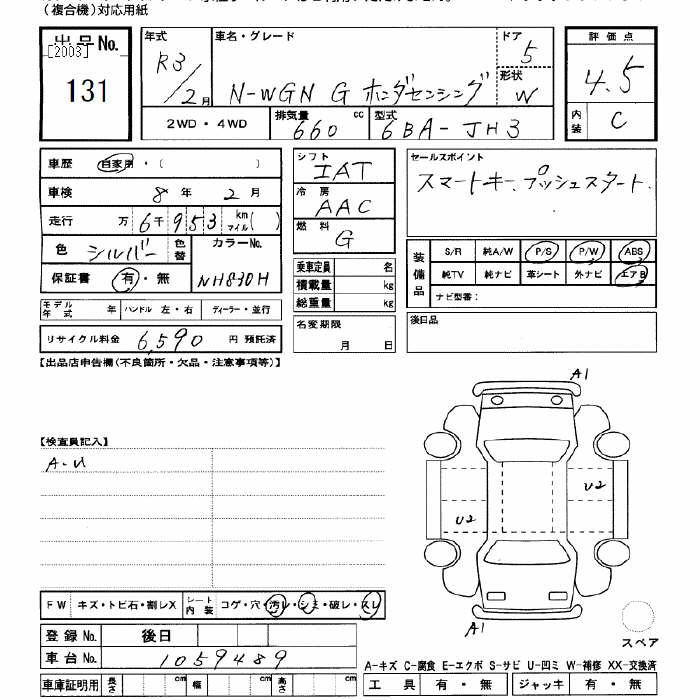 (複合機)対応用紙
出品No.
[2003]
131
年式
R3/2月
車名・グレード
N-WGN G ホンダセンシング
ドア
5
形状
W
評価点
4.5
内装
C
2WD・4WD
排気量
660 cc
型式
6BA-JH3
車歴 自家用・( )
車検 8年 2月
走行 万 6千953 km マイル( )
色 シルバー 色替
カラーNo.
NH830H
保証書 有・無
シフト
IAT
冷房
AAC
燃料
G
セールスポイント
スマートキー、プッシュスタート.
装備品
S/R 純A/W P/S P/W ABS
純TV 純ナビ 革シート 外ナビ エアB
ナビ型番:
乗車定員 名
積載量 kg
総重量 kg
モデル年式 年 ハンドル 左・右 ディーラー・並行
リサイクル料金 6,590 円 預託済
名変期限
月 日
後日品
【出品店申告欄(不良箇所・欠品・注意事項等)】
【検査員記入】
A-U
A1
U2
U2
A1
スペア
FW キズ・トビ石・割レX
シート内装 コゲ・穴・汚レ・シミ・破レ・スレ
登録No. 後日
車台No. 1059489
車庫証明用 長さ cm 幅 cm 高さ cm
A-キズ C-腐食 E-エクボ S-サビ U-凹ミ W-補修 XX-交換済
工具 有・無 ジャッキ 有・無